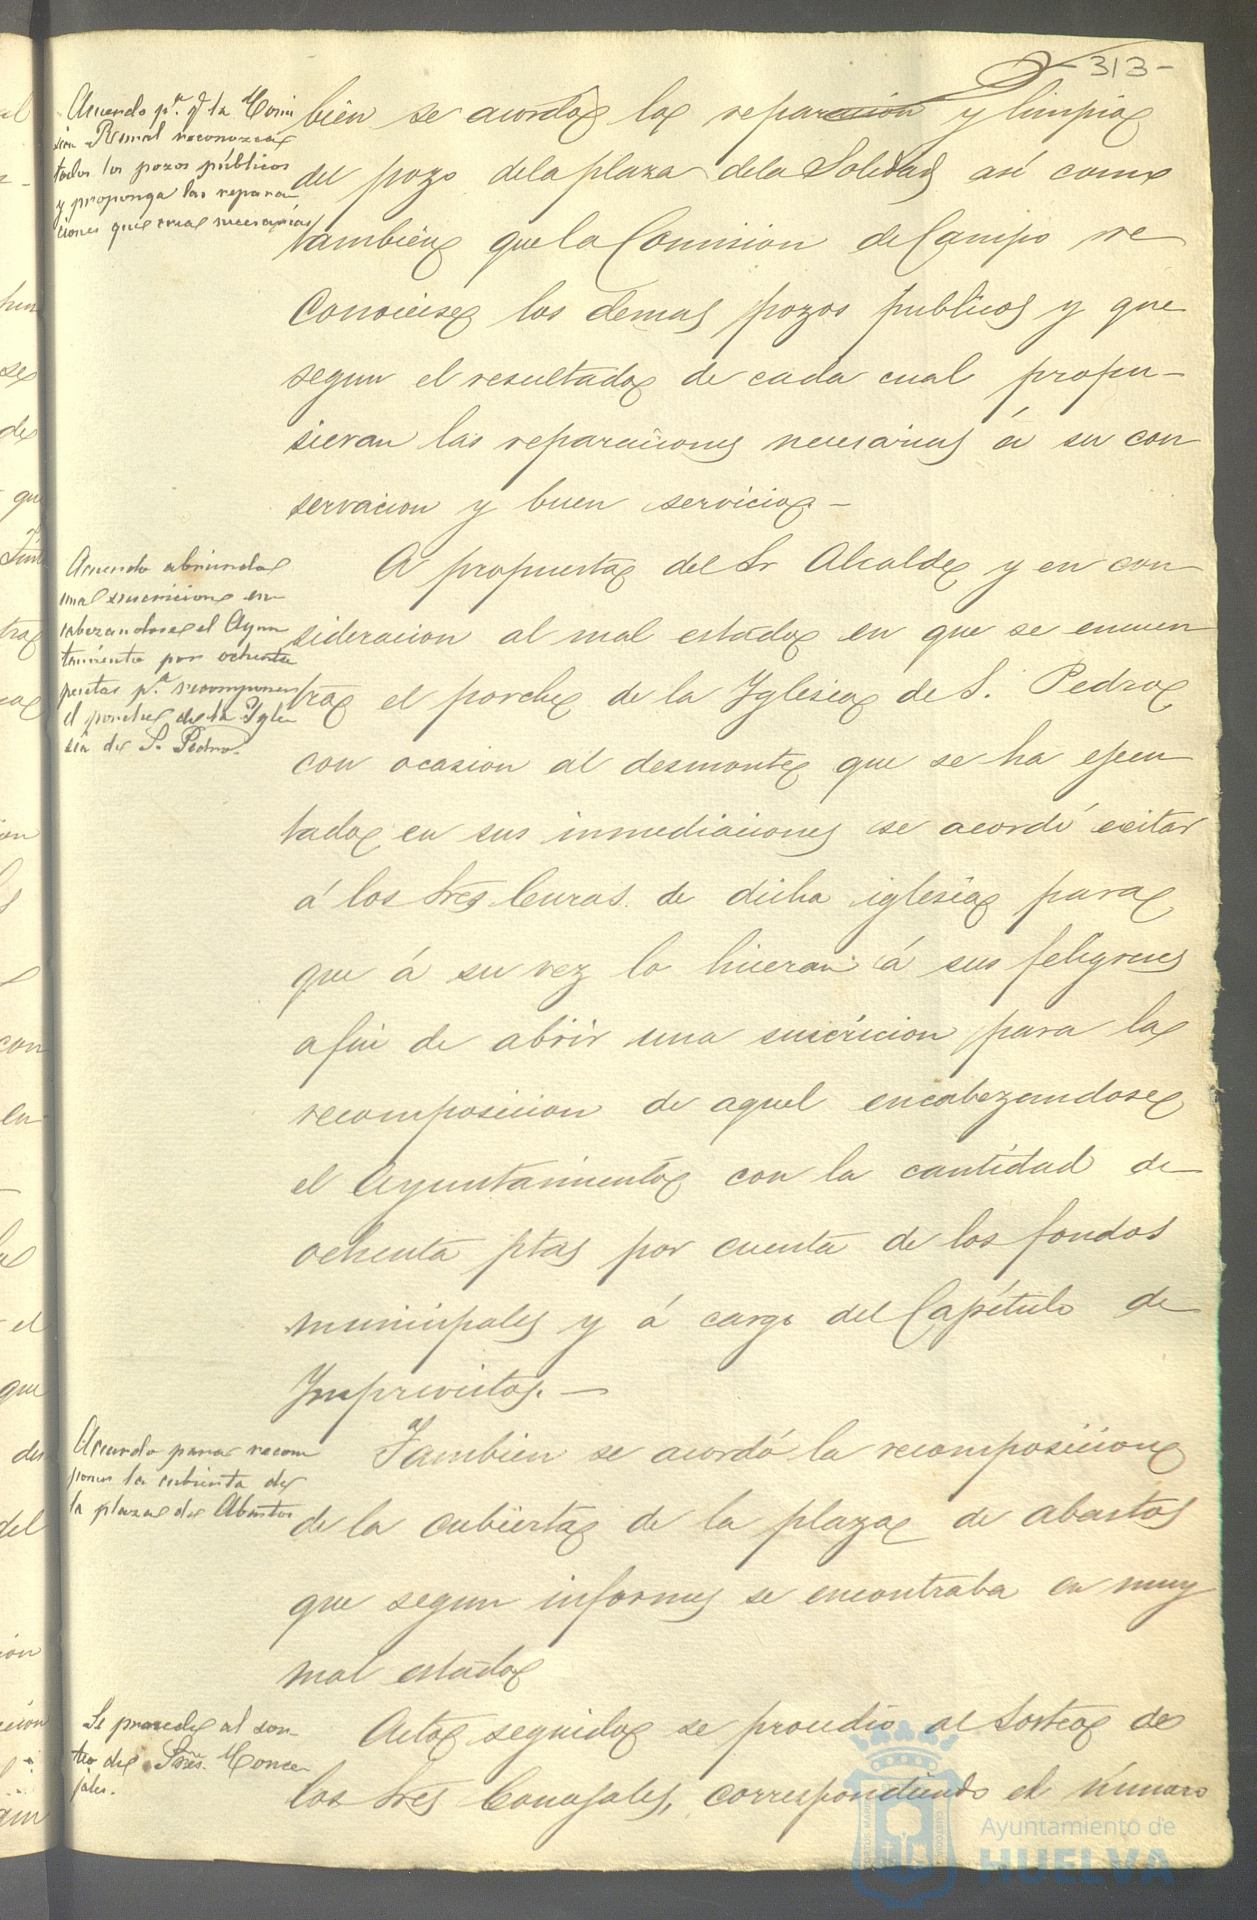 -313-
Acuerdo p.ª q̃ la Comi
sion Rural reconozca
todos los pozos públicos
y proponga las repara
ciones que crea necesarias
bien se acordó la reparacion y limpia
del pozo de la plaza de la Soledad asi como
tambien que la Comision de Campo re
conociese los demas pozos publicos y que
segun el resultado de cada cual propu-
sieran las reparaciones necesarias á su con
servacion y buen servicio.-
Acuerdo abriendo
una suscricion en
cabezandose el Ayun
tamiento por ochenta
pesetas p.ª recomponer
el porche de la Igle
sia de S. Pedro.
A propuesta del Sr Alcalde y en con
sideracion al mal estado en que se encuen
tra el porche de la Yglesia de S. Pedro
con ocasion al desmonte que se ha ejecu
tado en sus inmediaciones se acordó exitar
á los Sres Curas de dicha iglesia para
que á su vez lo hicieran á sus feligreses
afin de abrir una suscricion para la
recomposicion de aquel encabezandose
el Ayuntamiento con la cantidad de
ochenta ptas por cuenta de los fondos
municipales y á cargo del Capitulo de
Ymprevistos.-
Acuerdo para recom
poner la cubierta de
la plaza de Abastos
Tambien se acordó la recomposicion
de la cubierta de la plaza de abastos
que segun informes se encontraba en muy
mal estado
Se procede al sor-
teo de Sres. Conce-
jales.
Acto seguido se procedió al Sorteo de
los Sres Concejales, correspondiendo el número
Ayuntamiento de
HUELVA